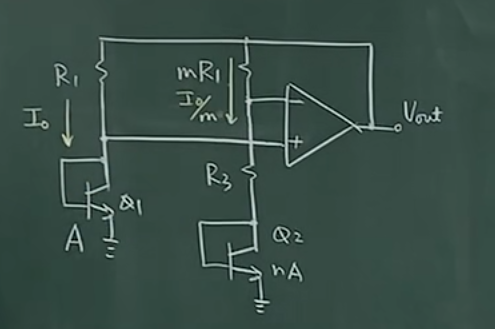 R₁
mR₁
I₀
I₀/m
−
+
Vout
R₃
Q₁
A
Q₂
nA